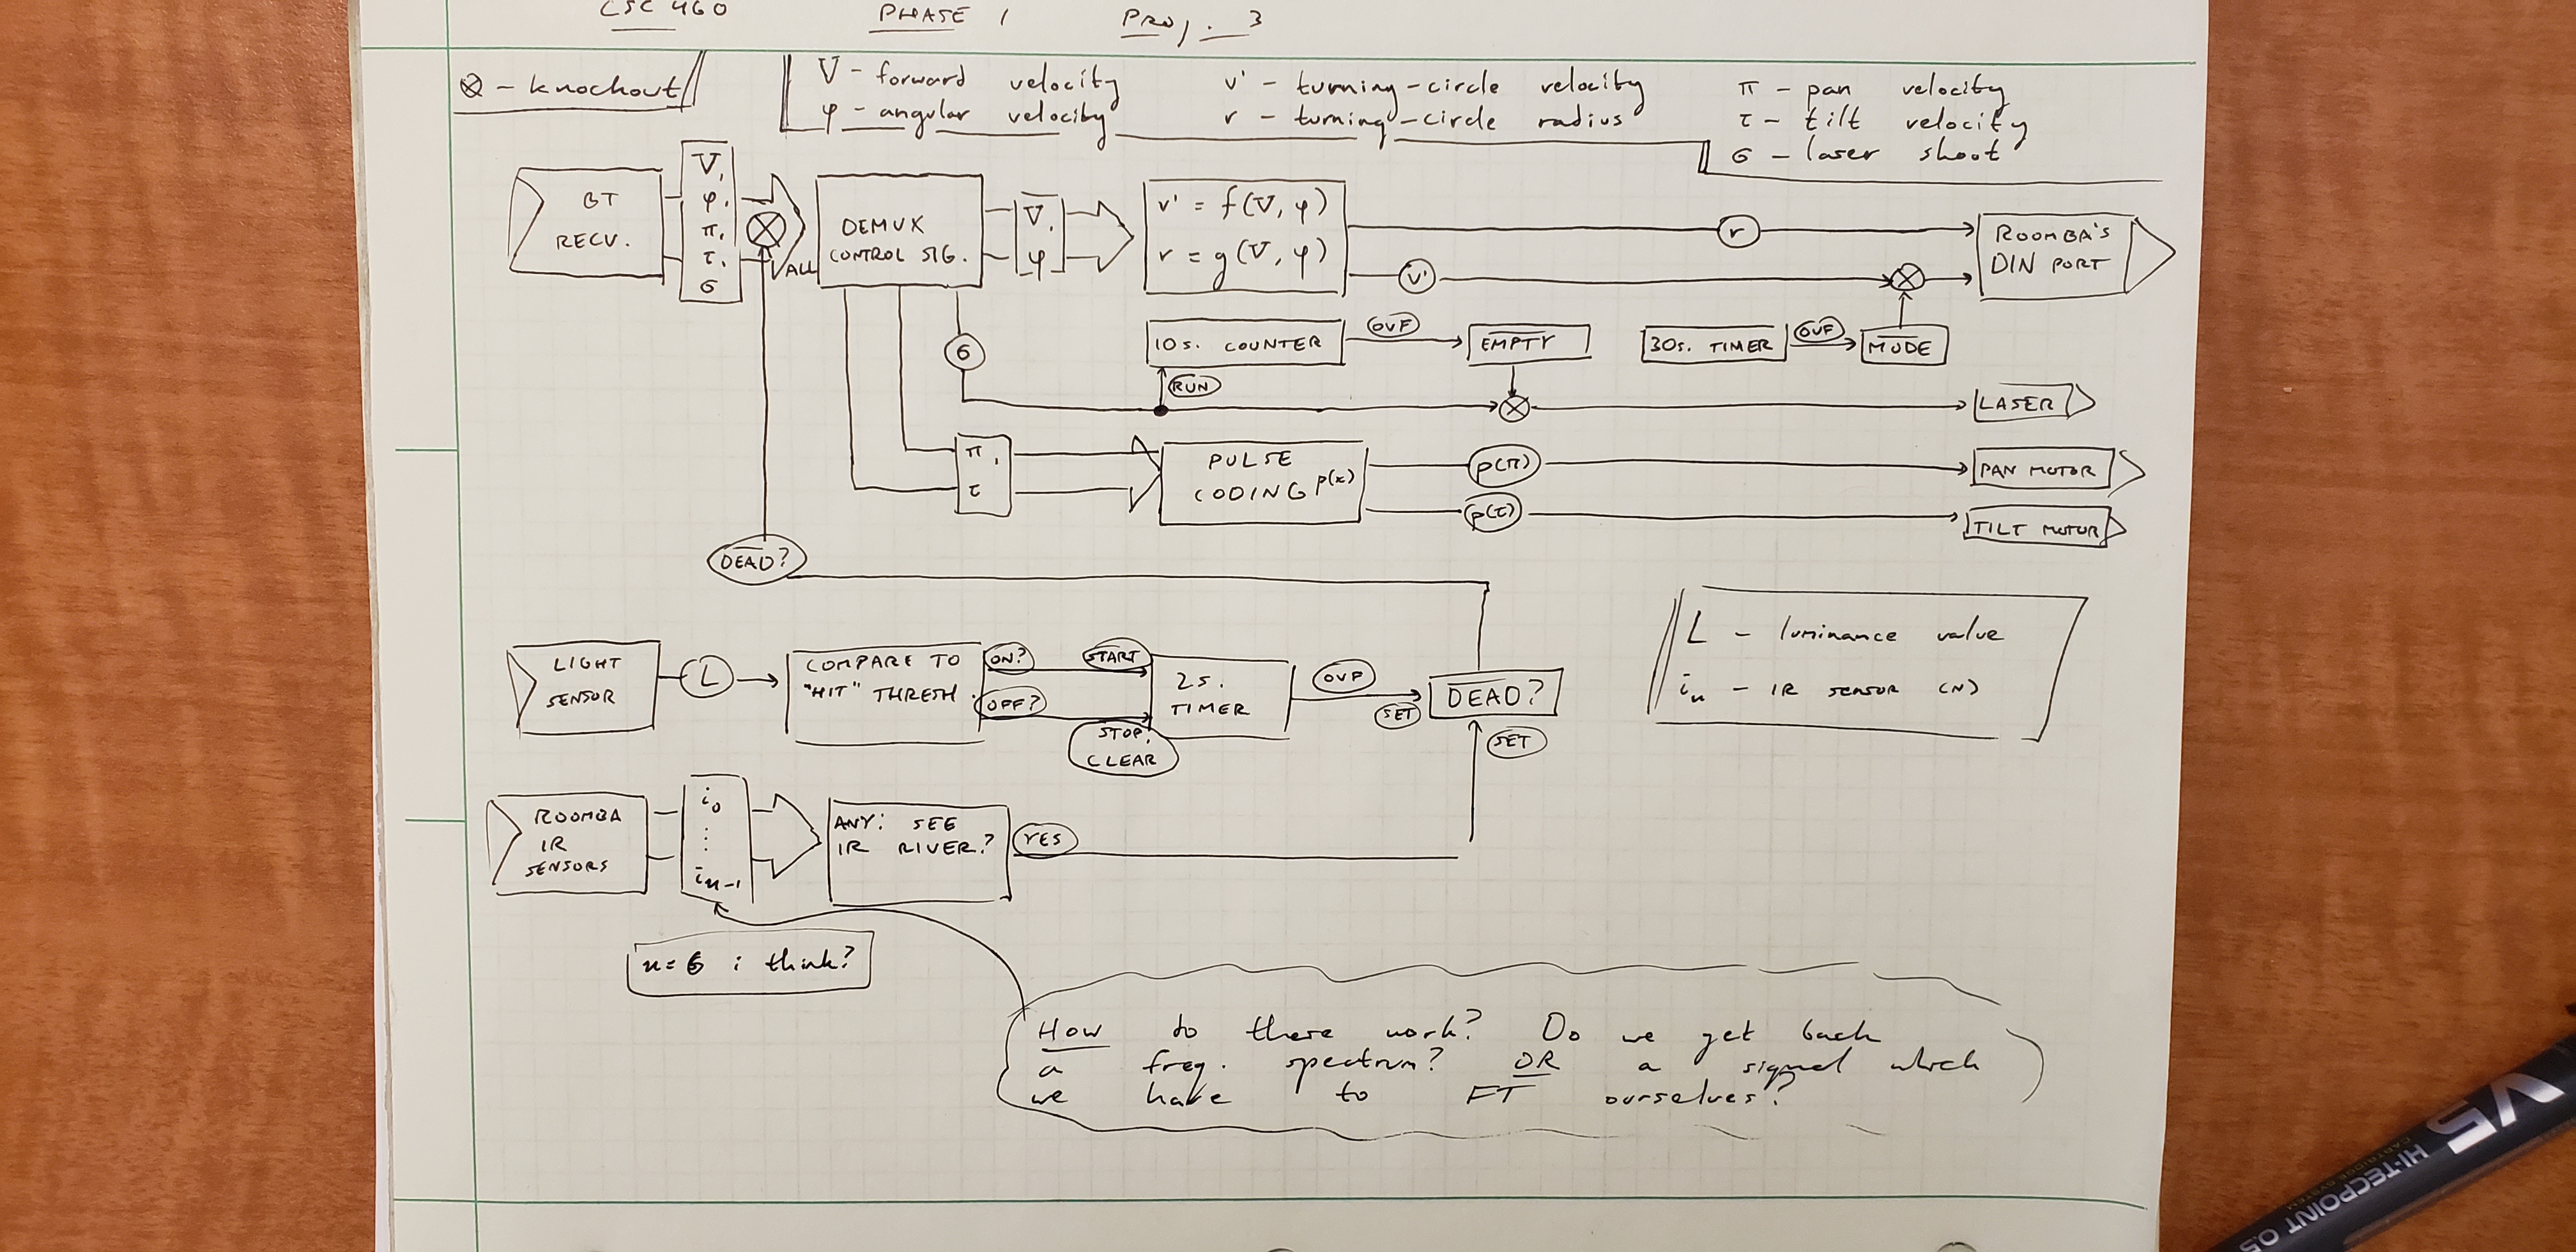 CSC 460 PHASE 1 PROJ. 3
⊗ - knockout
V - forward velocity
φ - angular velocity
v' - turning-circle velocity
r - turning-circle radius
π - pan velocity
τ - tilt velocity
σ - laser shoot
BT
RECV.
V,
φ,
π,
τ,
σ
ALL
DEMUX
CONTROL SIG.
V,
φ
v' = f(V, φ)
r = g(V, φ)
r
v'
ROOMBA'S
DIN PORT
σ
10s. COUNTER
OVF
EMPTY
30s. TIMER
OVF
MODE
RUN
LASER
π,
τ
PULSE
CODING p(x)
p(π)
p(τ)
PAN MOTOR
TILT MOTOR
DEAD?
LIGHT
SENSOR
L
COMPARE TO
"HIT" THRESH.
ON?
OFF?
START
STOP,
CLEAR
2s.
TIMER
OVF
SET
DEAD?
SET
L - luminance value
iₙ - IR sensor (N)
ROOMBA
IR
SENSORS
i₀
⋮
iₙ₋₁
ANY: SEE
IR RIVER?
YES
n=6 i think?
How do these work? Do we get back
a freq. spectrum? OR a signal which
we have to FT ourselves?
V5
HI-TECPOINT 0.5